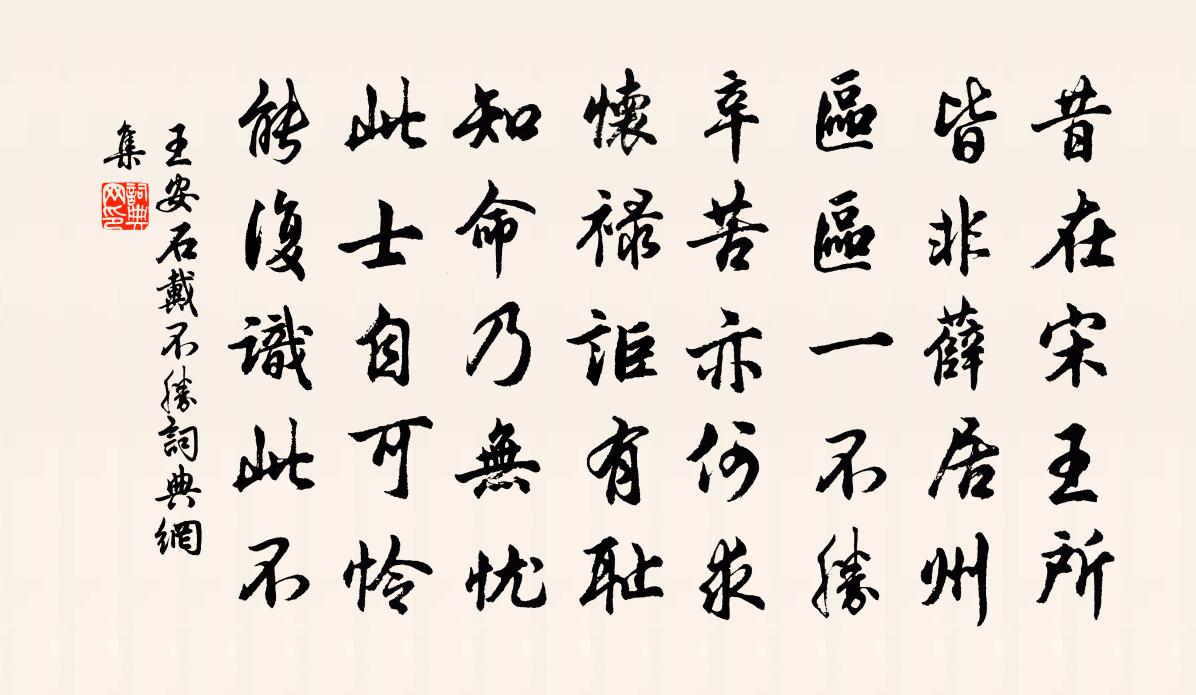 昔在宋王所
皆非薛居州
區區一不勝
辛苦亦何求
懷禄詎有耻
知命乃無忧
此士自可怜
能復識此不
王安石戴不勝詞典網
集
詞典
网印